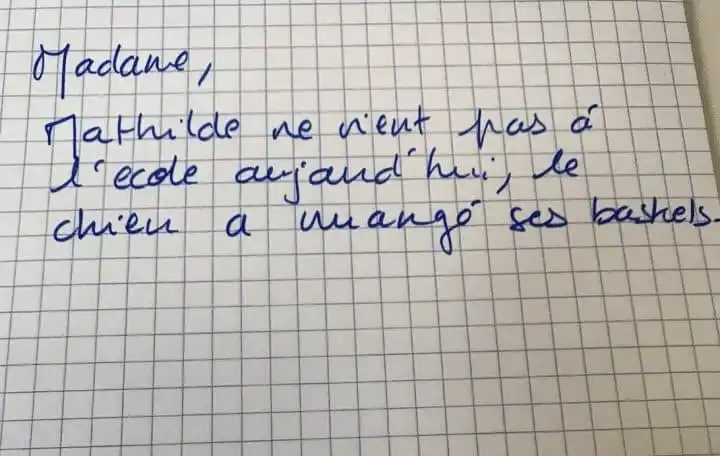 Madame,
Mathilde ne vient pas à
l'ecole aujourd'hui, le
chien a mangé ses baskets.